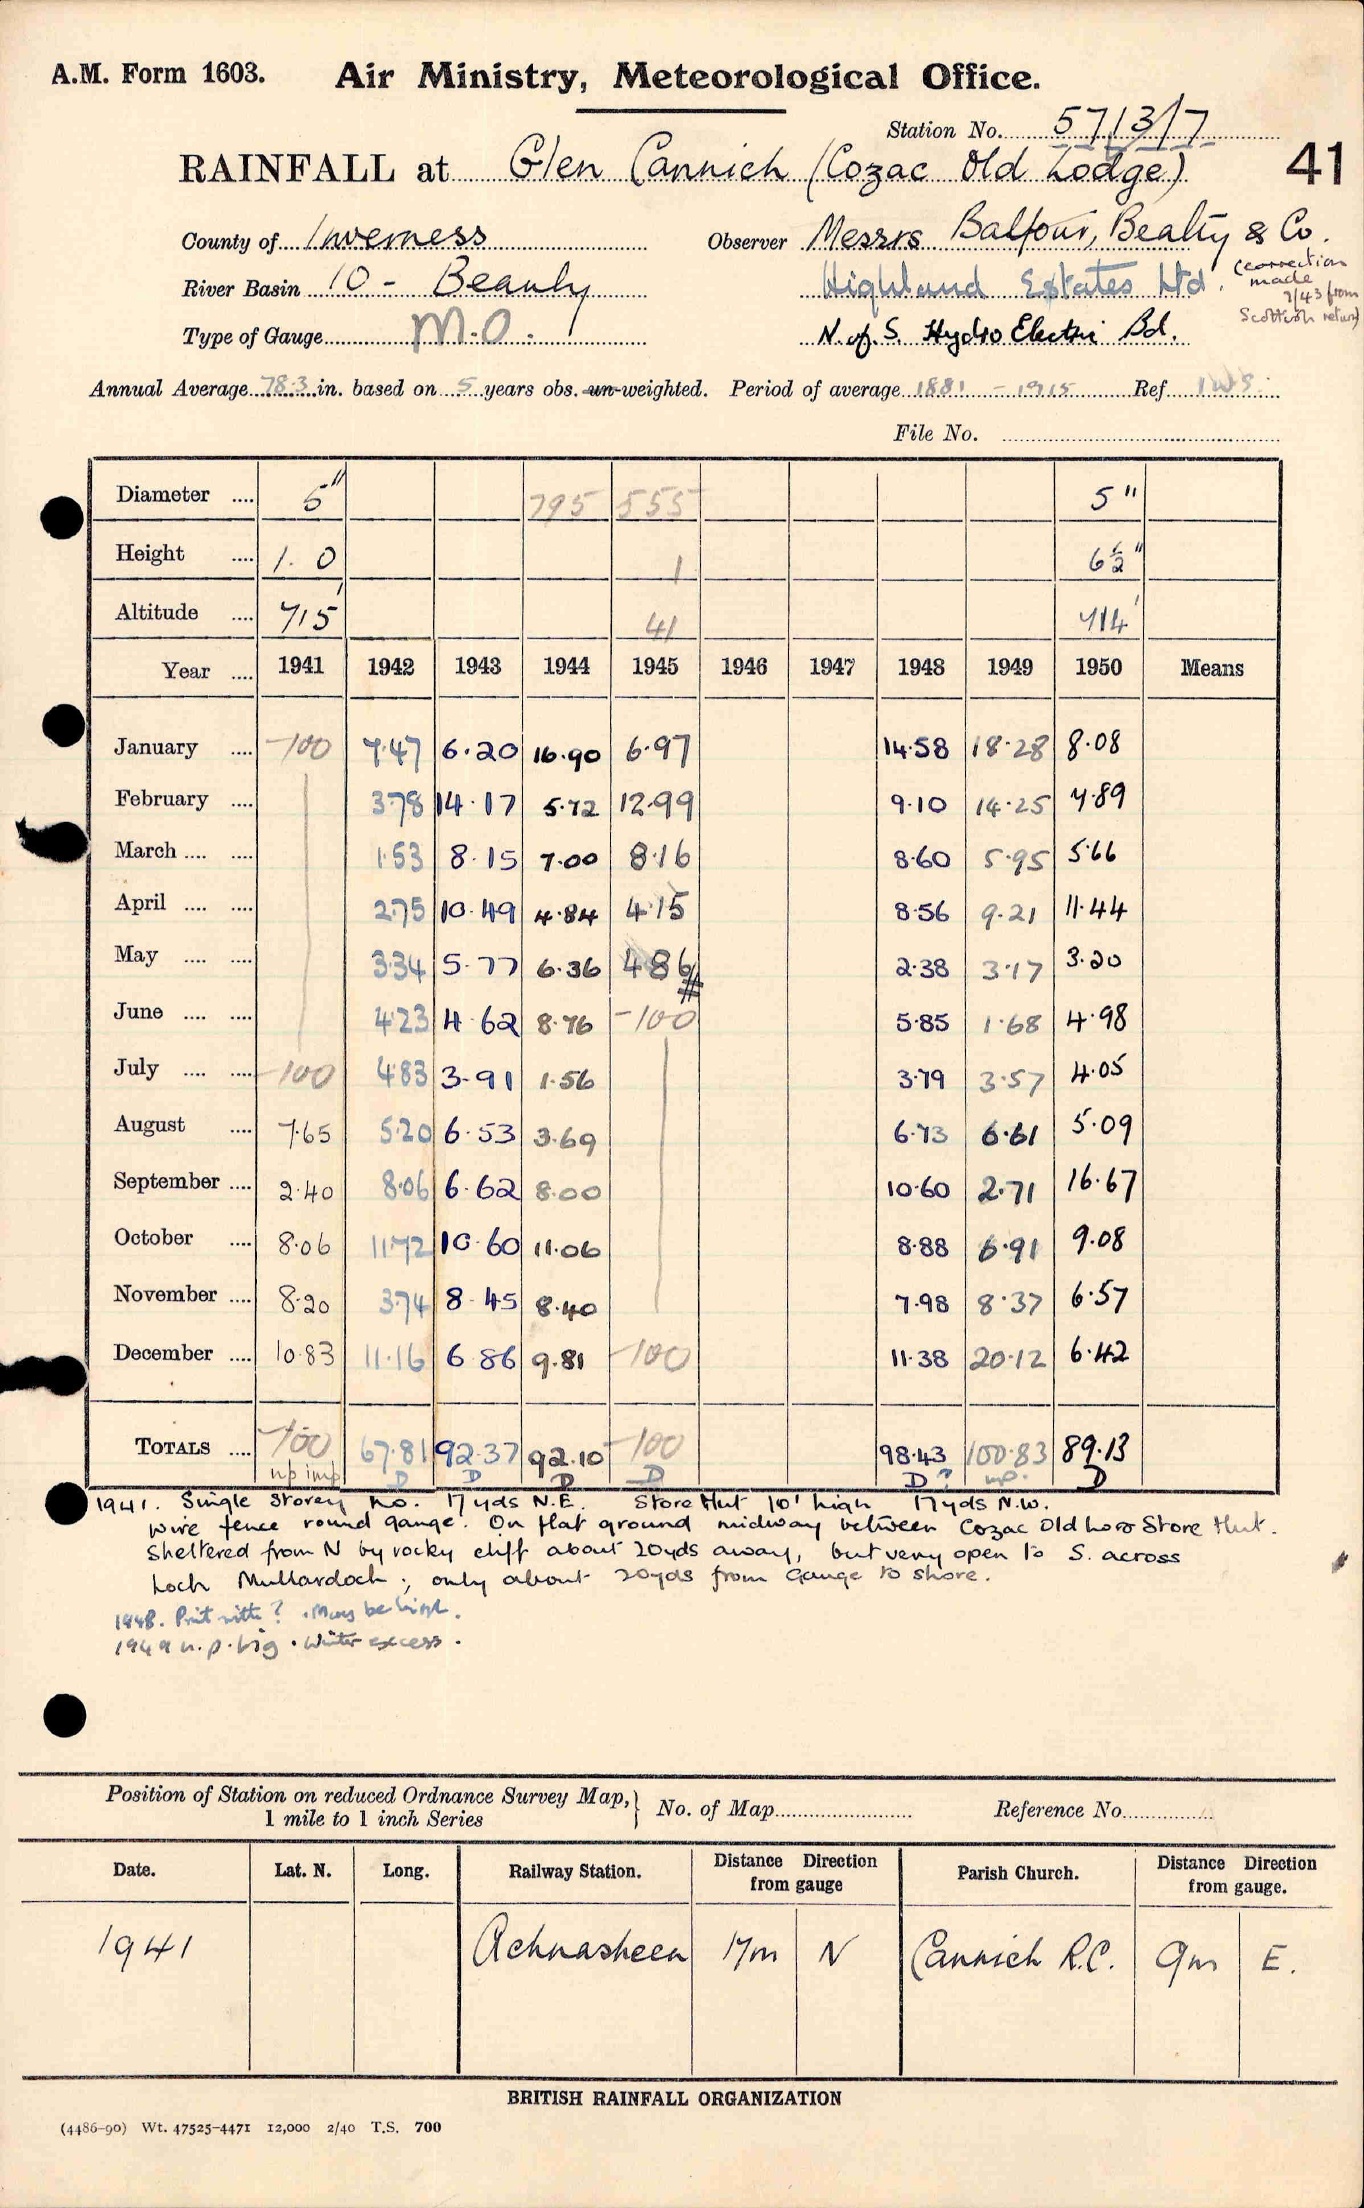 A.M. Form 1603. Air Ministry, Meteorological Office.
Station No. 5713/7
RAINFALL at Glen Cannich (Cozac Old Lodge) 41
County of Inverness Observer Messrs Balfour, Beatty & Co.
(correction made 7/43 from Scottish return)
River Basin 10 - Beauly Highland Estates Ltd.
Type of Gauge M.O. N. of S. Hydro Electric Bd.
Annual Average 78.3 in. based on 5 years obs. un-weighted. Period of average 1881 - 1915 Ref
File No.
Diameter .... 5" 795 555 5"
Height .... 1. 0 1 6½"
Altitude .... 715' 41 714'
Year .... 1941 1942 1943 1944 1945 1946 1947 1948 1949 1950 Means
January .... -100 7.47 6.20 16.90 6.97 14.58 18.28 8.08
February .... 3.78 14.17 5.72 12.99 9.10 14.25 7.89
March .... .... 1.53 8.15 7.00 8.16 8.60 5.95 5.66
April .... .... 2.75 10.49 4.84 4.15 8.56 9.21 11.44
May .... .... 3.34 5.77 6.36 4.86 # 2.38 3.17 3.20
June .... .... 4.23 4.62 8.76 -100 5.85 1.68 4.98
July .... .... -100 4.83 3.91 1.56 3.79 3.57 4.05
August .... 7.65 5.20 6.53 3.69 6.73 6.61 5.09
September .... 2.40 8.06 6.62 8.00 10.60 2.71 16.67
October .... 8.06 11.72 10.60 11.06 8.88 6.91 9.08
November .... 8.20 3.74 8.45 8.40 7.98 8.37 6.57
December .... 10.83 11.16 6.86 9.81 -100 11.38 20.12 6.42
TOTALS .... -100 67.81 92.37 92.10 -100 98.43 100.83 89.13
np imp D D D D D ? np. D
1941. Single storey ho. 17 yds N.E. Store Hut 10' high 17 yds N.W.
Wire fence round gauge. On flat ground midway between Cozac Old Store Hut.
Sheltered from N by rocky cliff about 20yds away, but very open to S. across
Loch Mullardoch; only about 20yds from Gauge to shore.
1948. ? May be high.
1949 n.p. big. Winter excess.
Position of Station on reduced Ordnance Survey Map, 1 mile to 1 inch Series } No. of Map Reference No.
Date. Lat. N. Long. Railway Station. Distance Direction from gauge Parish Church. Distance Direction from gauge.
1941 Achnasheen 17m N Cannich R.C. 9m E.
BRITISH RAINFALL ORGANIZATION
(4486-90) Wt. 47525-4471 12,000 2/40 T.S. 700